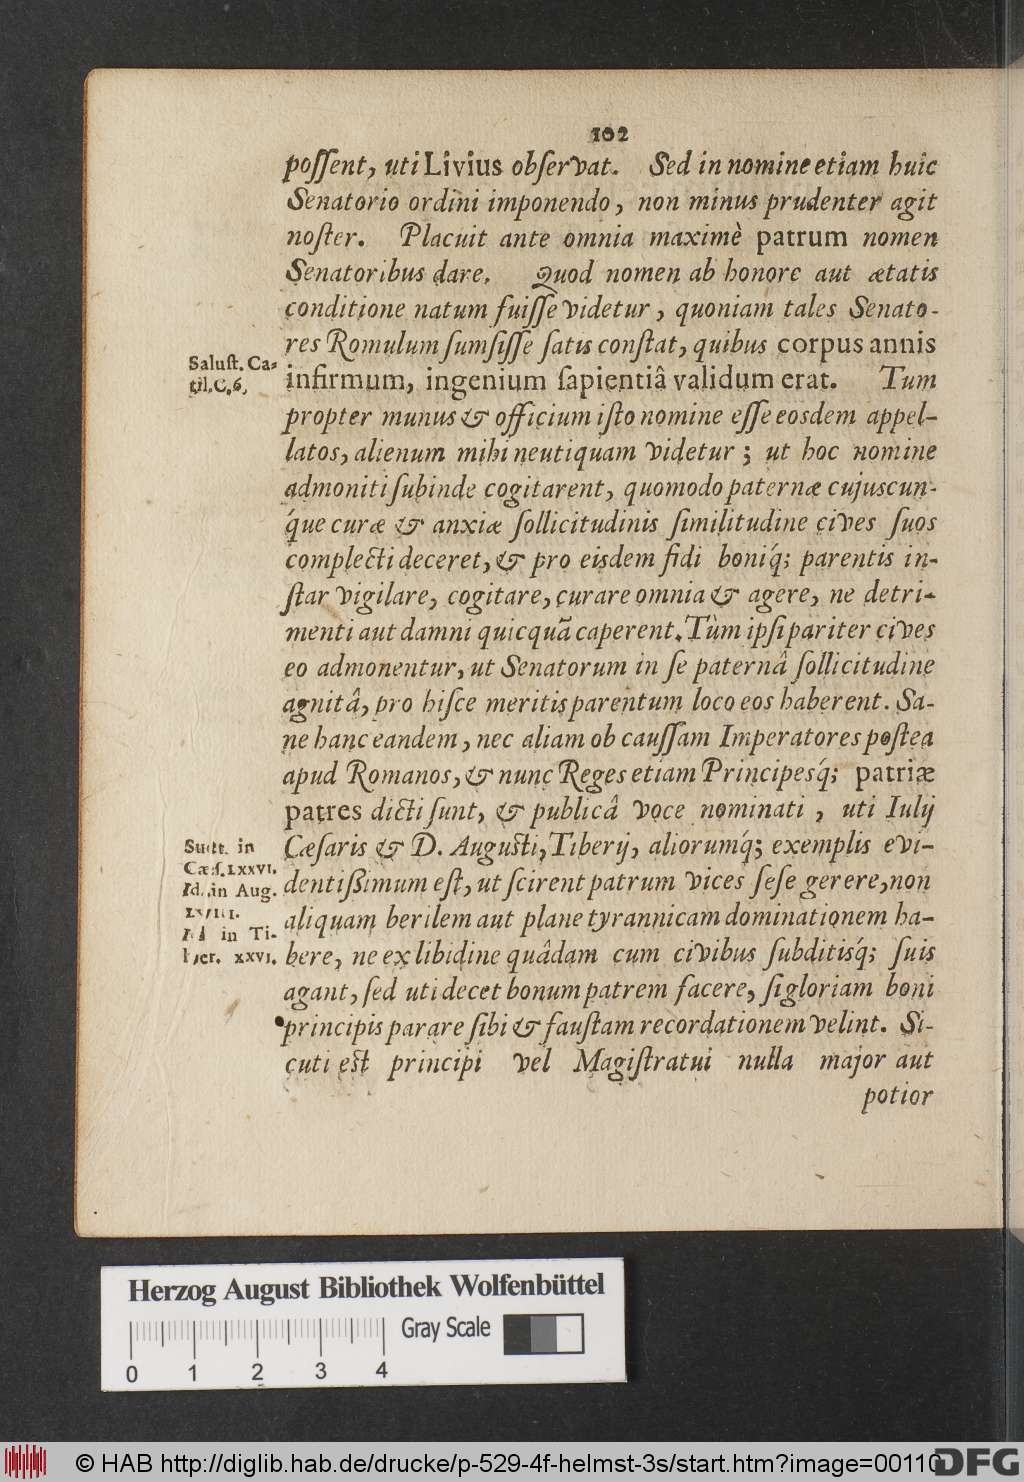 102
poſſent, uti Livius obſervat. Sed in nomine etiam huic
Senatorio ordini imponendo, non minus prudenter agit
noſter. Placuit ante omnia maximè patrum nomen
Senatoribus dare. Quod nomen ab honore aut ætatis
conditione natum fuiſſe videtur, quoniam tales Senato-
res Romulum ſumſiſſe ſatis conſtat, quibus corpus annis
Saluſt. Ca-
til. C. 6.
infirmum, ingenium ſapientiâ validum erat. Tum
propter munus & officium iſto nomine eſſe eosdem appel-
latos, alienum mihi neutiquam videtur; ut hoc nomine
admoniti ſubinde cogitarent, quomodo paternæ cujuscun-
q́ue curæ & anxiæ ſollicitudinis ſimilitudine cives ſuos
complecti deceret, & pro eisdem fidi boniq́; parentis in-
ſtar vigilare, cogitare, curare omnia & agere, ne detri-
menti aut damni quicquã caperent. Tùm ipſi pariter cives
eo admonentur, ut Senatorum in ſe paternâ ſollicitudine
agnitâ, pro hiſce meritis parentum loco eos haberent. Sa-
ne hanc eandem, nec aliam ob cauſſam Imperatores poſtea
apud Romanos, & nunc Reges etiam Principesq́; patriæ
patres dicti ſunt, & publicâ voce nominati, uti Iulij
Suet. in
Cæſ. LXXVI.
Id. in Aug.
LVIII.
Id in Ti-
ber. XXVI.
Cæſaris & D. Auguſti, Tiberij, aliorumq́; exemplis evi-
dentißimum eſt, ut ſcirent patrum vices ſeſe gerere, non
aliquam berilem aut plane tyrannicam dominationem ha-
bere, ne ex libidine quâdam cum civibus ſubditisq́; ſuis
agant, ſed uti decet bonum patrem facere, ſi gloriam boni
principis parare ſibi & fauſtam recordationem velint. Si-
cuti eſt principi vel Magiſtratui nulla major aut
potior
Herzog August Bibliothek Wolfenbüttel
Gray Scale
0 1 2 3 4
© HAB http://diglib.hab.de/drucke/p-529-4f-helmst-3s/start.htm?image=00110
DFG